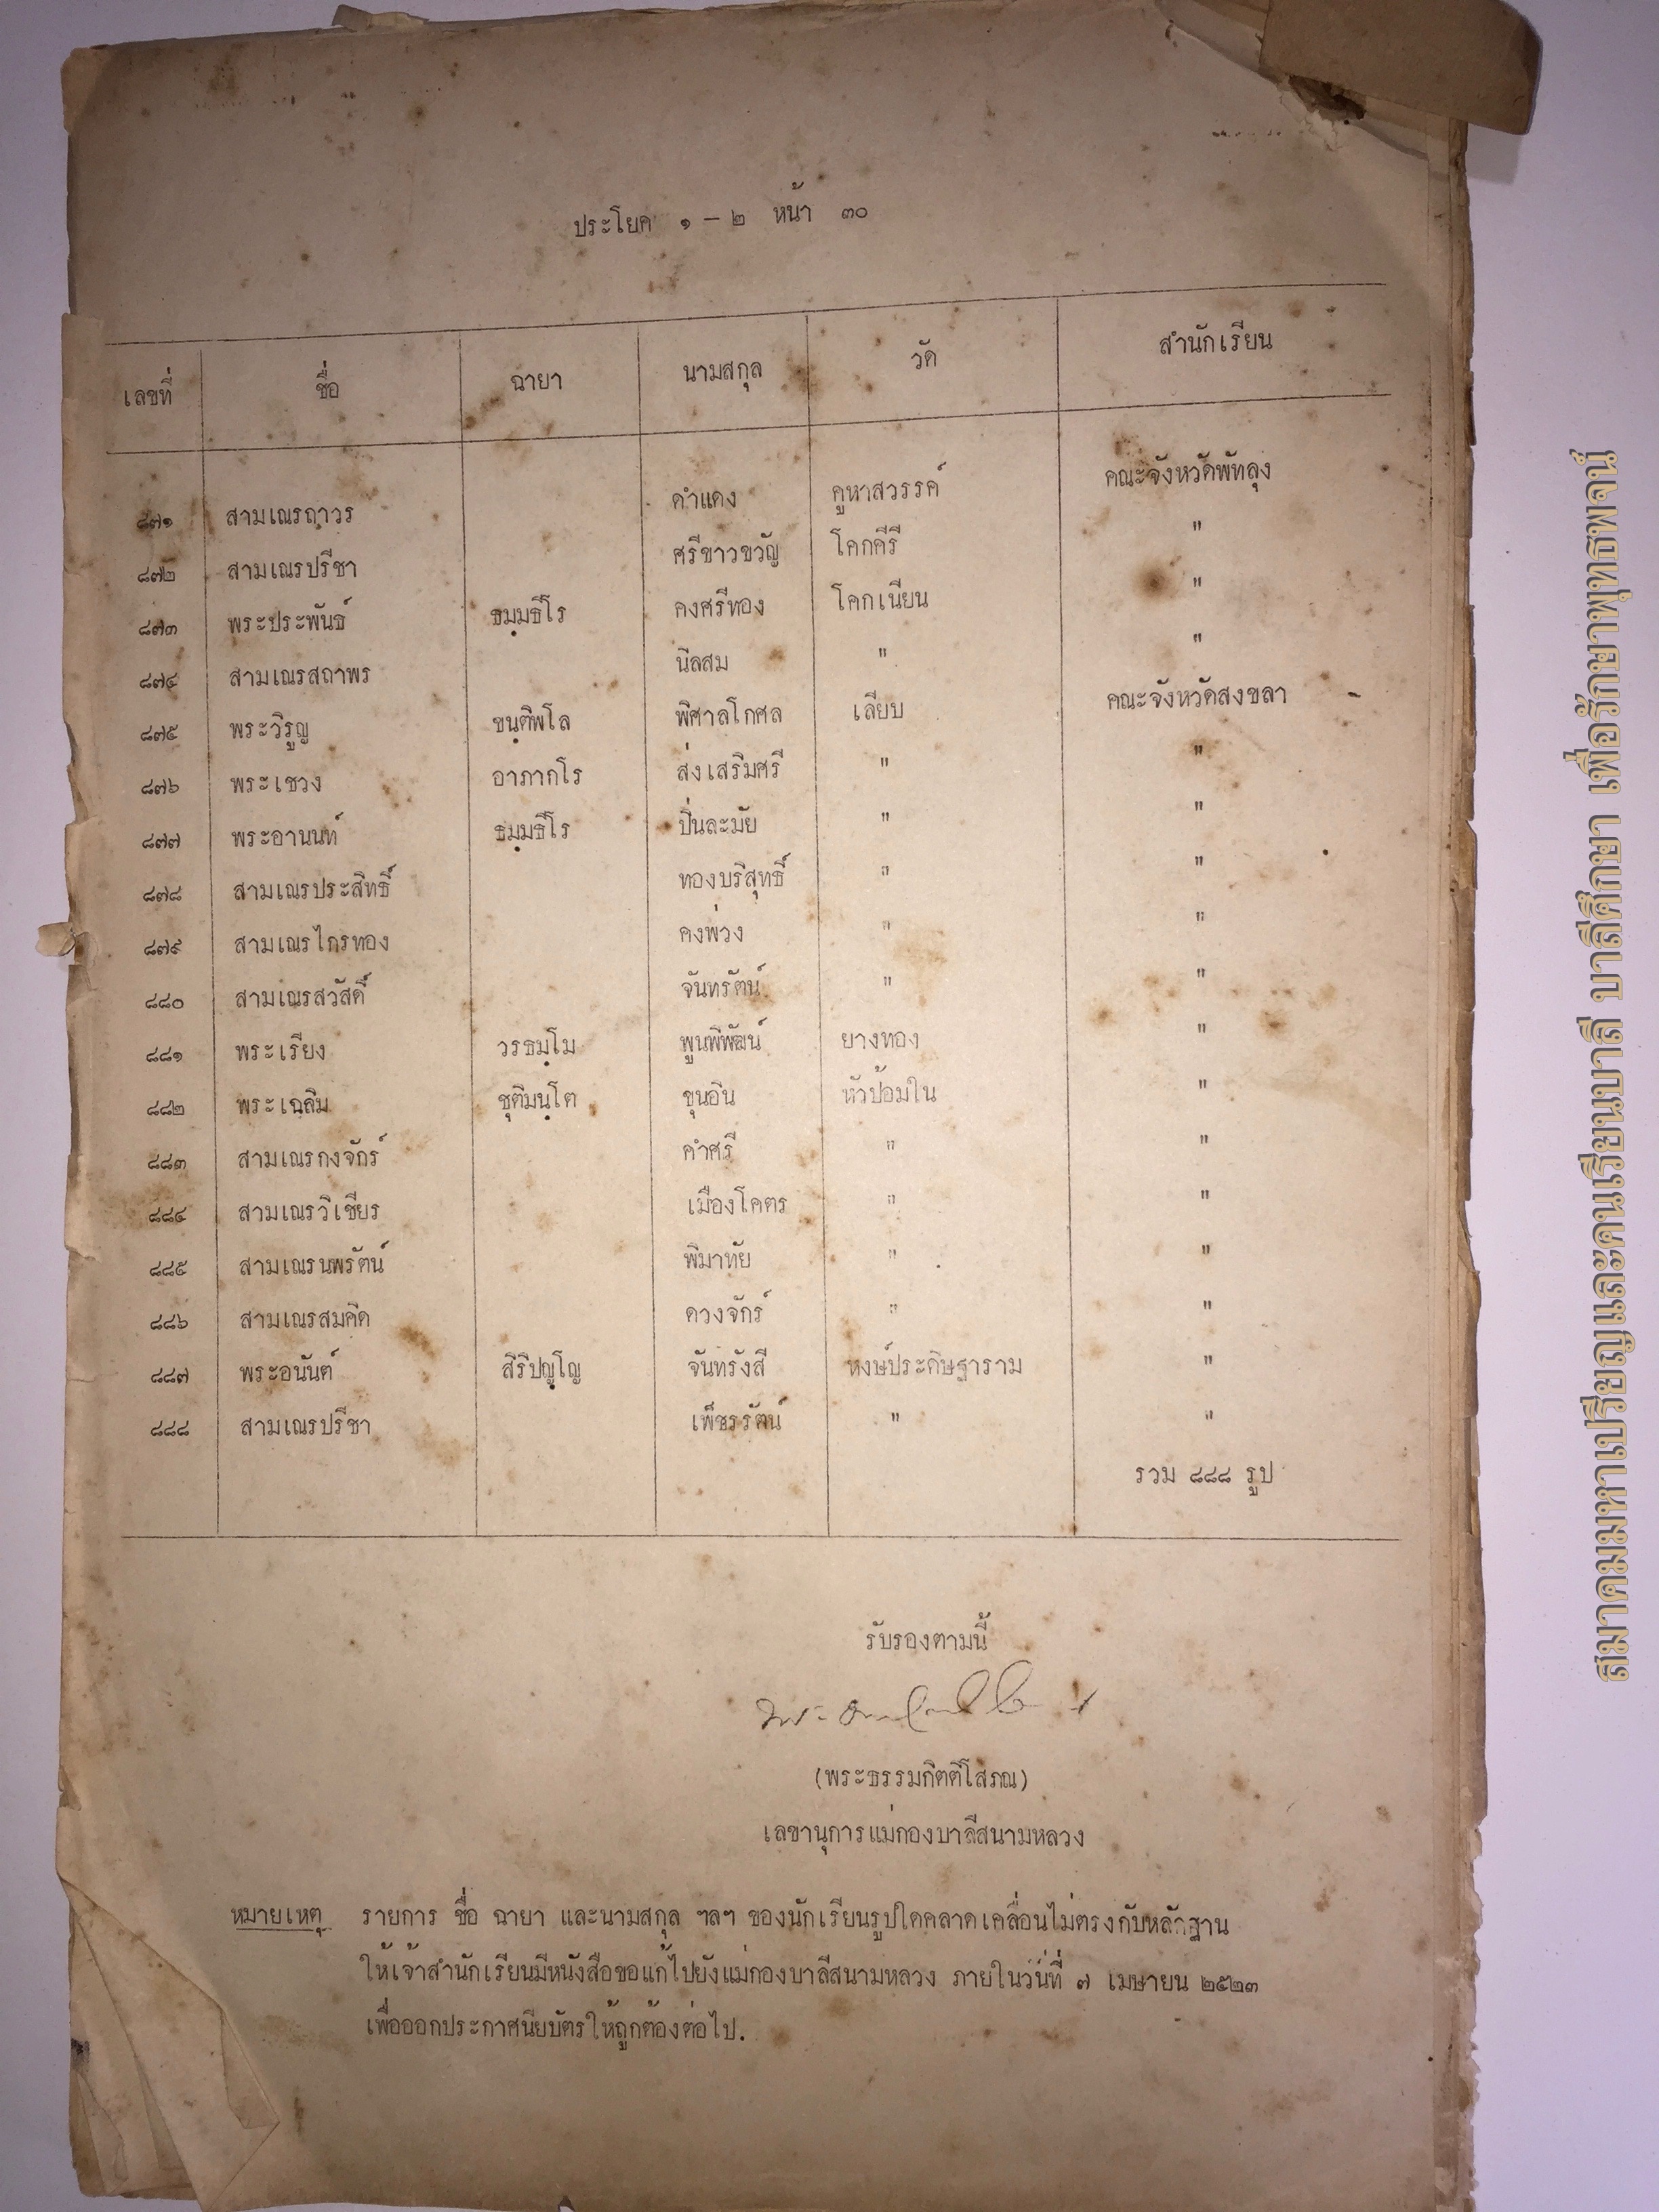 ประโยค ๑ – ๒ หน้า ๓๐
เลขที่ ชื่อ ฉายา นามสกุล วัด สำนักเรียน
๘๗๑ สามเณรถาวร ดำแดง คูหาสวรรค์ คณะจังหวัดพัทลุง
๘๗๒ สามเณรปรีชา ศรีขาวขวัญ โคกคีรี "
๘๗๓ พระประพันธ์ ธมฺมธีโร คงศรีทอง โคกเนียน "
๘๗๔ สามเณรสถาพร นิลสม " "
๘๗๕ พระวิรูญ ขนฺติพโล พิศาลโกศล เลียบ คณะจังหวัดสงขลา
๘๗๖ พระเชวง อาภากโร ส่งเสริมศรี " "
๘๗๗ พระอานนท์ ธมฺมธีโร ปิ่นละมัย " "
๘๗๘ สามเณรประสิทธิ์ ทองบริสุทธิ์ " "
๘๗๙ สามเณรไกรทอง คงพ่วง " "
๘๘๐ สามเณรสวัสดิ์ จันทรัตน์ " "
๘๘๑ พระเรียง วรธมฺโม พูนพิพัฒน์ ยางทอง "
๘๘๒ พระเฉลิม ชุติมนฺโต ขุนอิน หัวป้อมใน "
๘๘๓ สามเณรกงจักร์ คำศรี " "
๘๘๔ สามเณรวิเชียร เมืองโคตร " "
๘๘๕ สามเณรนพรัตน์ พิมาทัย " "
๘๘๖ สามเณรสมคิด ดวงจักร์ " "
๘๘๗ พระอนันต์ สิริปญฺโญ จันทรังสี หงษ์ประดิษฐาราม "
๘๘๘ สามเณรปรีชา เพ็ชรรัตน์ " "
รวม ๘๘๘ รูป
รับรองตามนี้
(พระธรรมกิตติโสภณ)
เลขานุการแม่กองบาลีสนามหลวง
หมายเหตุ รายการ ชื่อ ฉายา และนามสกุล ฯลฯ ของนักเรียนรูปใดคลาดเคลื่อนไม่ตรงกับหลักฐาน
ให้เจ้าสำนักเรียนมีหนังสือขอแก้ไปยังแม่กองบาลีสนามหลวง ภายในวันที่ ๗ เมษายน ๒๕๒๓
เพื่อออกประกาศนียบัตรให้ถูกต้องต่อไป.
สมาคมมหาเปรียญและคนเรียนบาลี บาลีศึกษา เพื่อรักษาพุทธพจน์